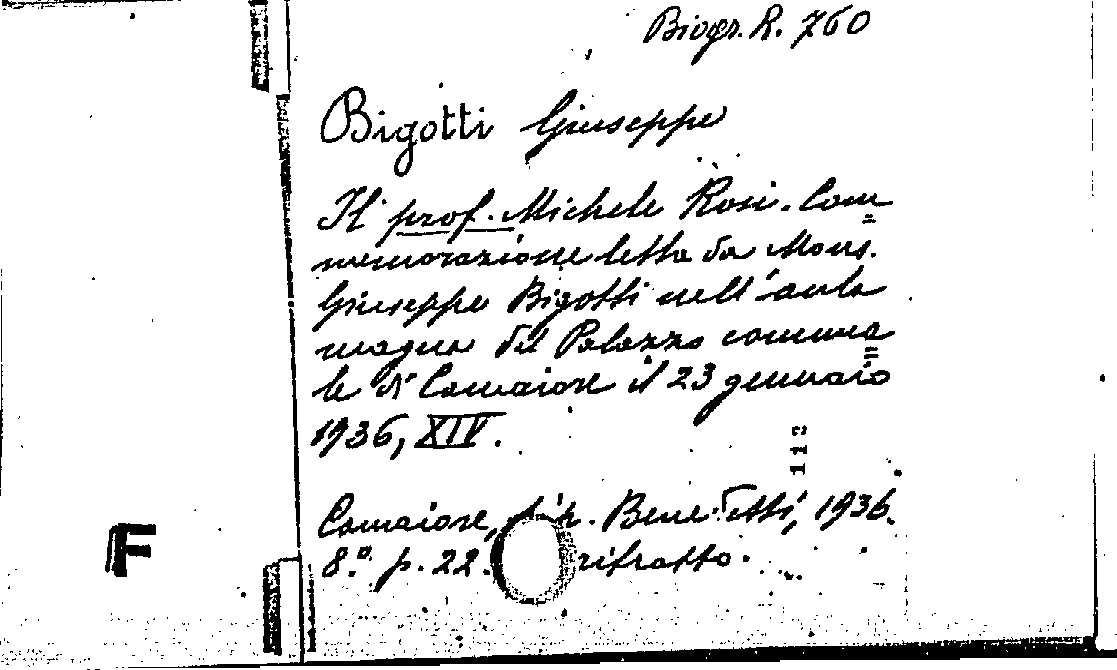 Biogr. R. 760
Bigotti Giuseppe
Il prof. Michele Rosi. Com=
memorazione letta da Mons.
Giuseppe Bigotti nell'aula
magna del Palazzo comuna=
le di Camaiore il 23 gennaio
1936, XIV.
Camaiore, tip. Benedetti, 1936.
8.° p. 22. ritratto.
F